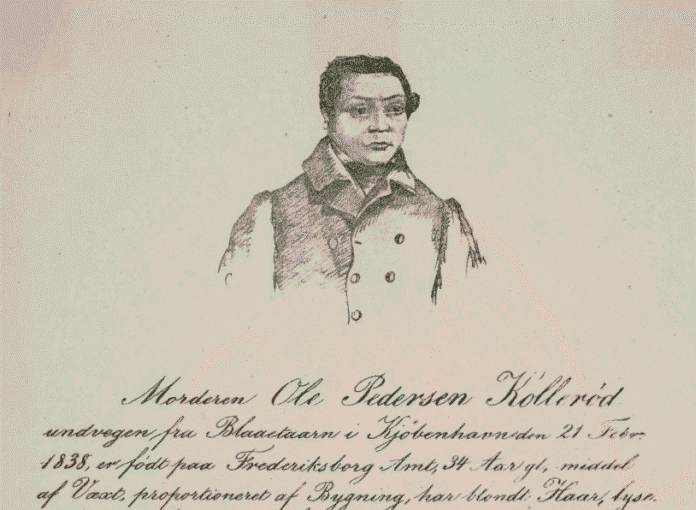 Morderen Ole Pedersen Köllerød
undvegen fra Blaaetaarn i Kjöbenhavn den 21 Febr.
1838, er født paa Frederiksborg Amt, 34 Aar gl, middel
af Væxt, proportioneret af Bygning, har blondt Haar, lyse